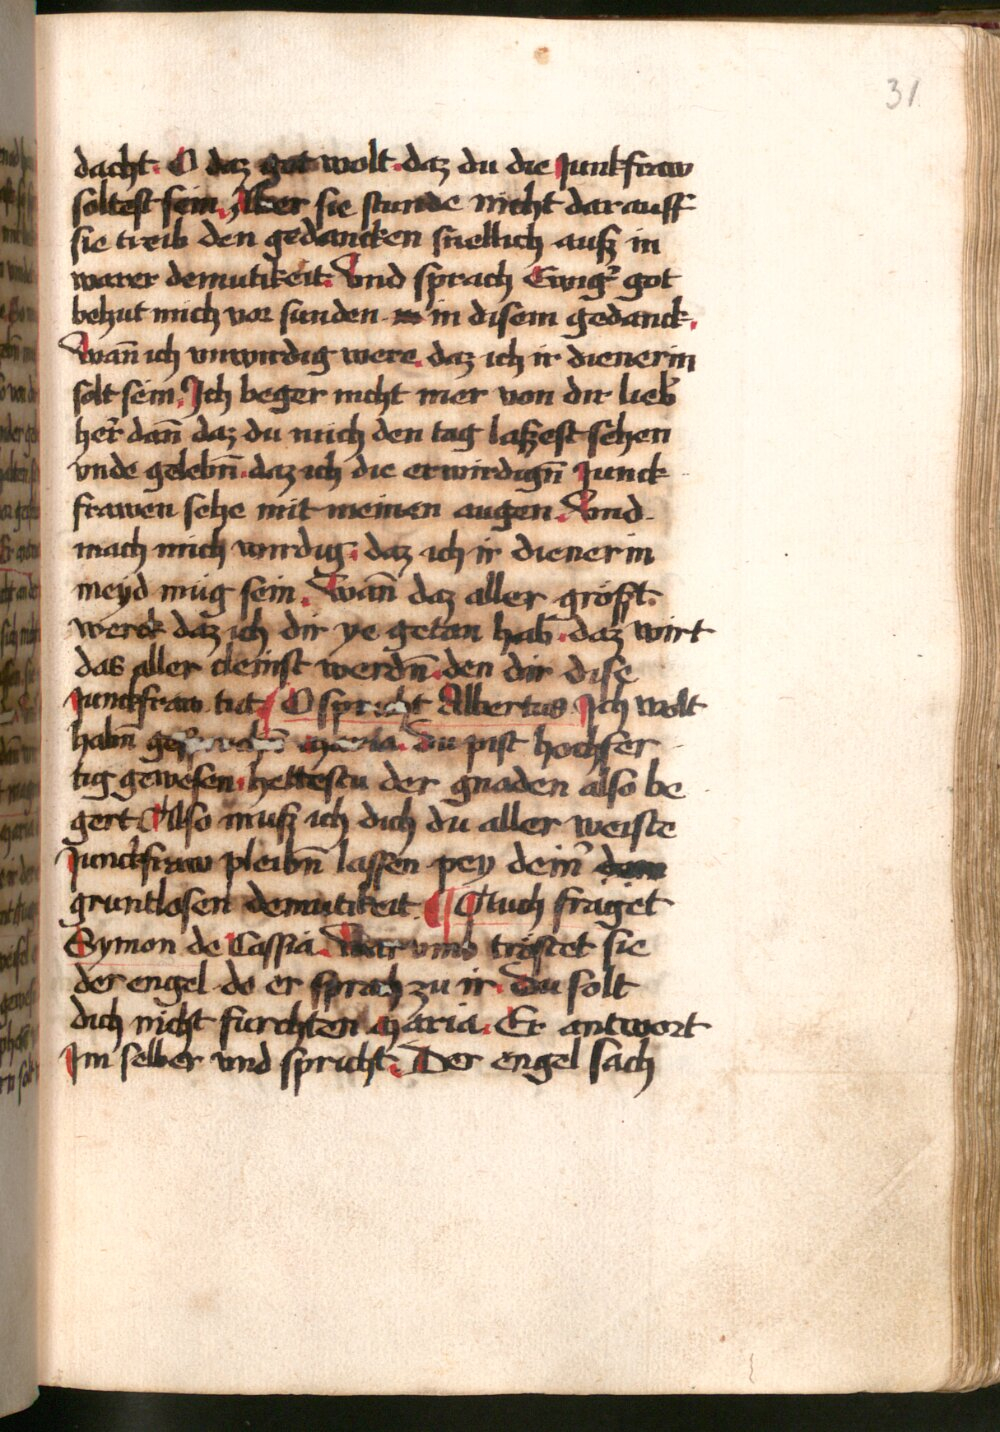 31
dacht. O daz got wolt. daz du die Junkfraw
soltest sein. Aber sie stunde nicht darauff
sie treib den gedancken snellich auß in
warer demutikeit. Vnd sprach Ewig᷑ got
behut mich vor sunden in disem gedanck.
Wan̄ ich vnwirdig were. daz ich ir dienerin
solt sein. Ich beger nicht mer von dir lieb᷑
her᷑ dan̄ daz du mich den tag laßest sehen
vnde gelebn̄. daz ich die erwirdign̄ Junck
frawen sehe mit meinen augen. Vnd
mach mich wirdig. daz ich ir dienerin
meyd müg sein. Wan̄ daz aller gröst
werck daz ich dir ye getan hab. daz wirt
das aller cleinst werdn̄. den dir dise
Junckfraw tut. O spricht Albertus Ich wolt
habn̄ gesprochn̄ maria. Du pist hochfer
tig gewesen. hettestu der gnaden also be
gert Also muß ich dich du aller weiste
Junckfraw pleibn̄ lassen pey dein᷑
gruntlosen demutikeit. ¶ Auch fraget
Symon de Cassia. War vmb tröstet sie
der engel do er sprach zu ir. Du solt
dich nicht furchten maria. Er antwort
Im selber vnd spricht. Der engel sach